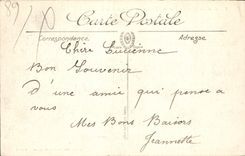 89/
Carte Postale
Correspondance
Adresse
Chère Lucienne
Bon Souvenir
D'une amie qui pense a
vous
Mes Bons Baisers
Jeannette